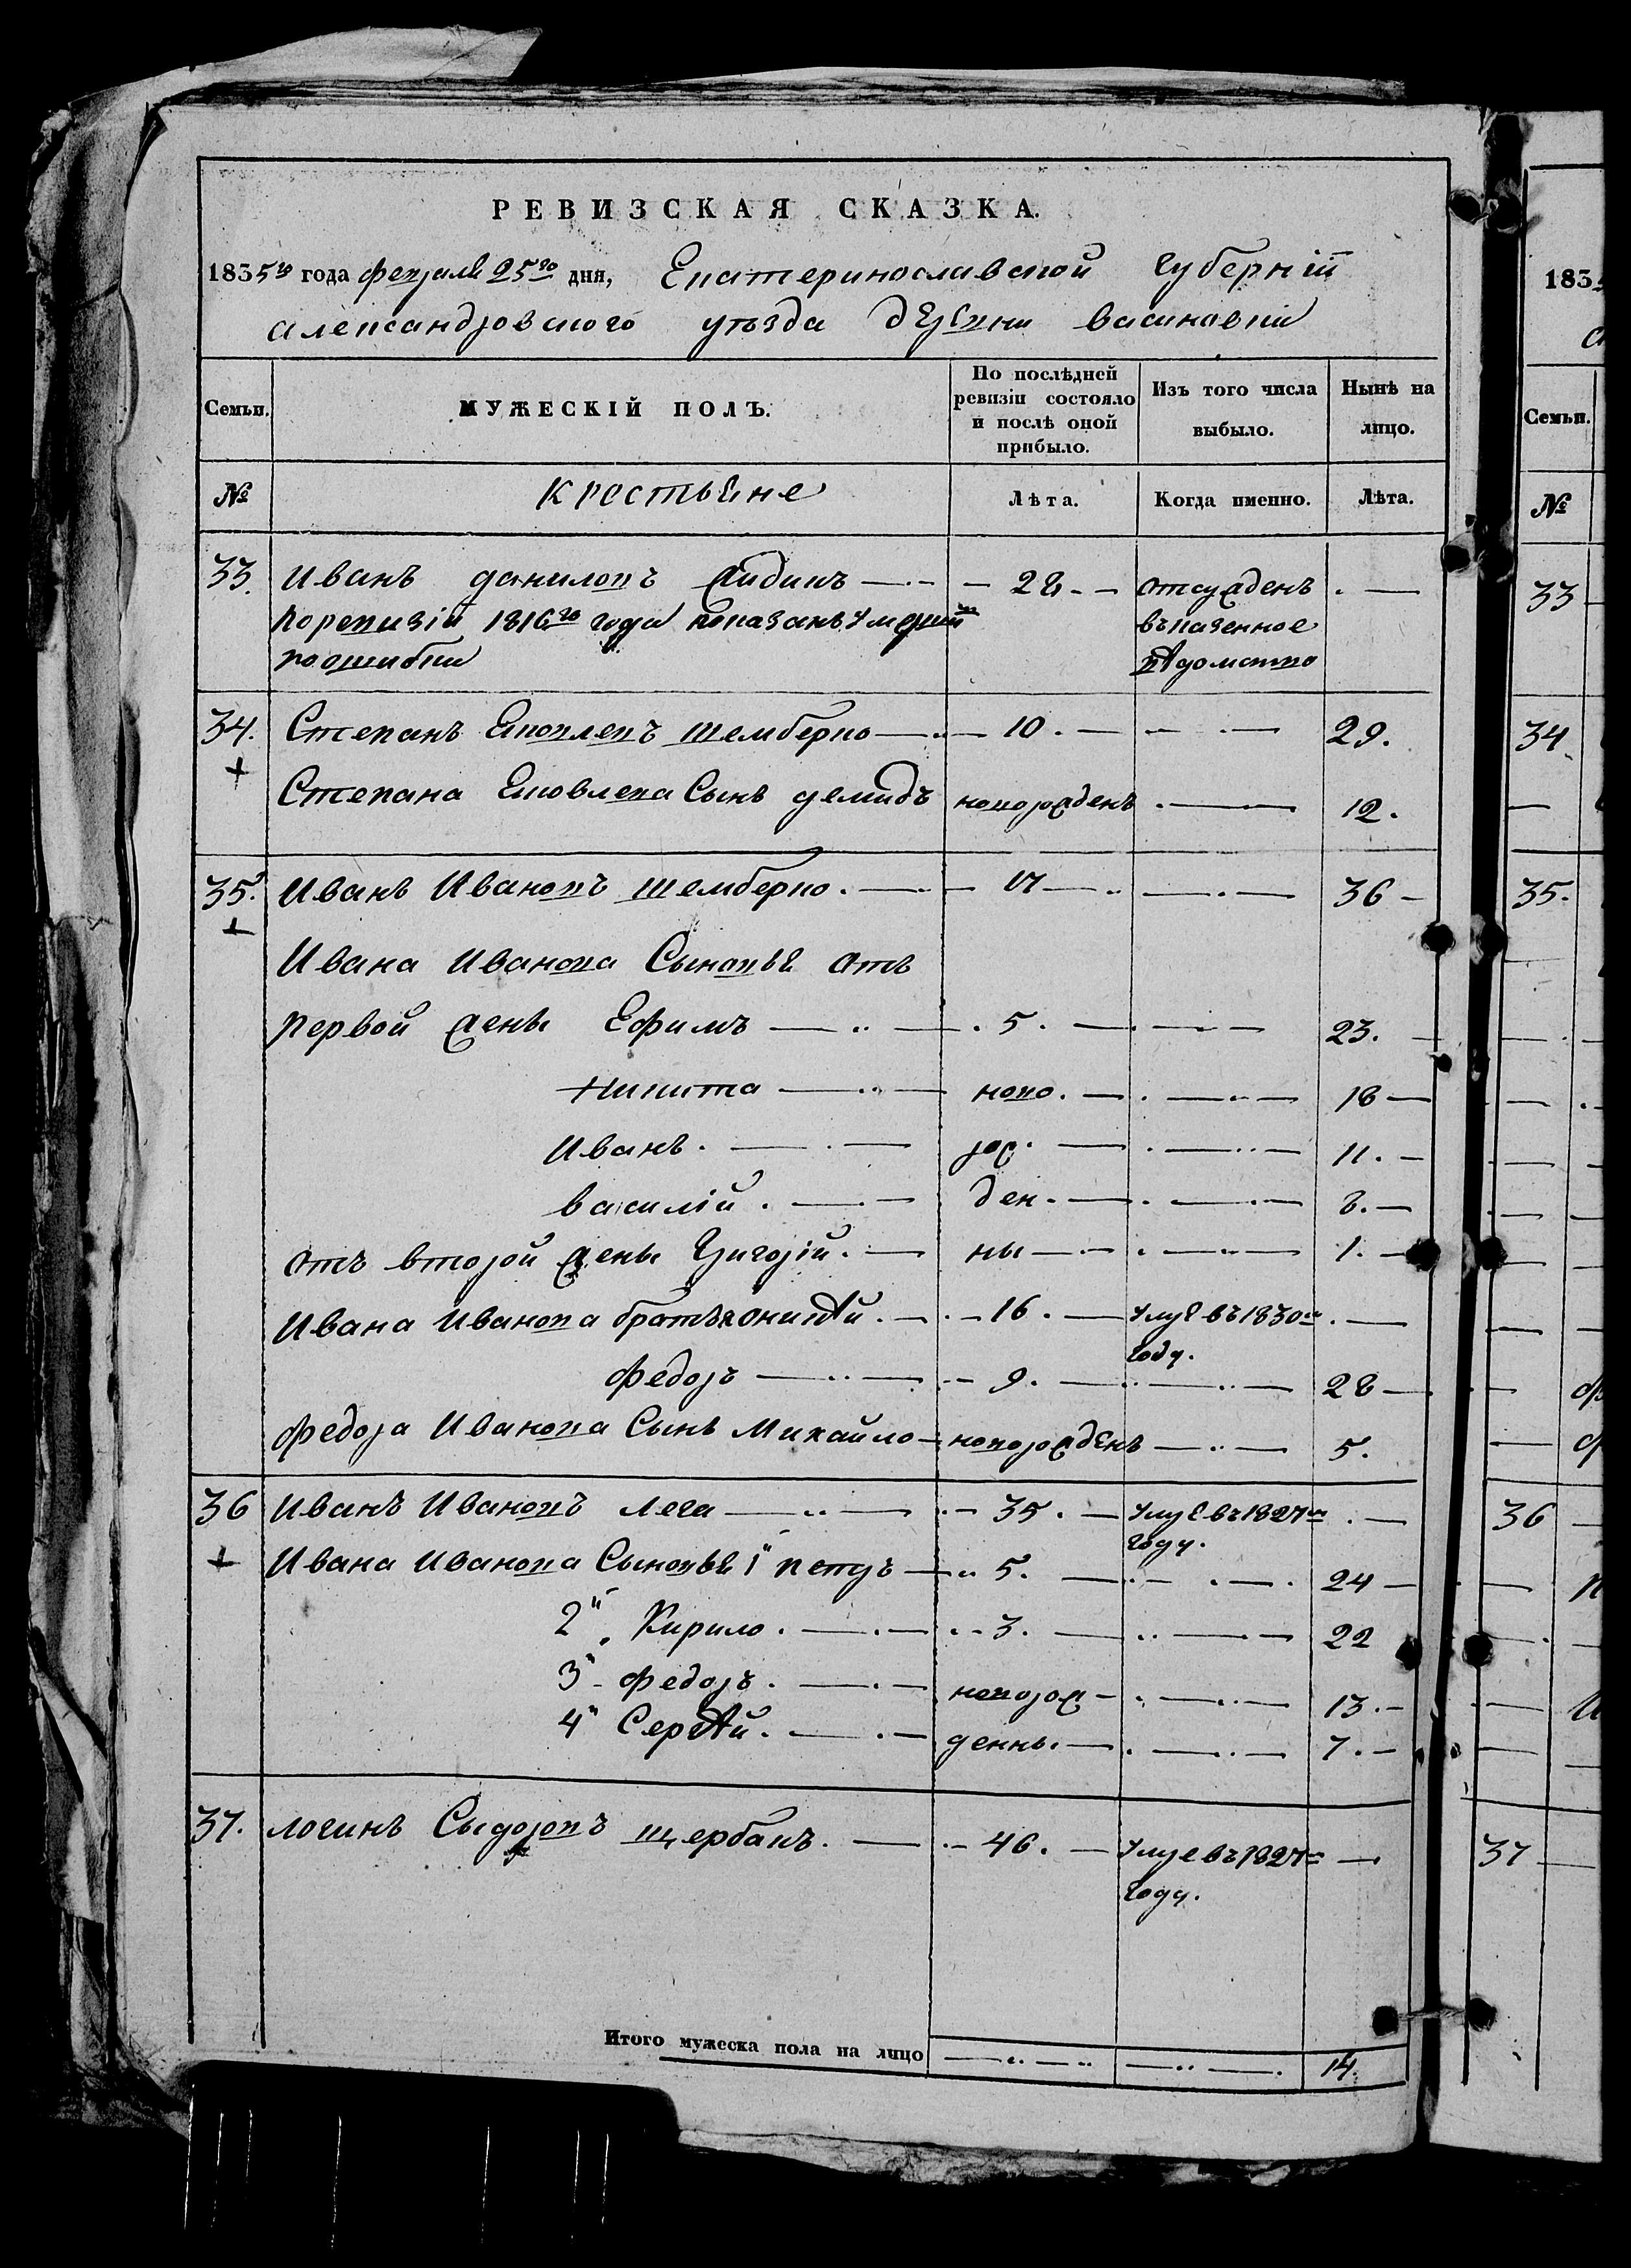 РЕВИЗСКАЯ СКАЗКА.
1835го года февраля 25го дня, Екатеринославской Губернiи
Александровского уезда деревни васиновки
Семьи.
МУЖЕСКІЙ ПОЛЪ.
По послѣдней ревизіи состояло и послѣ оной прибыло.
Изъ того числа выбыло.
Нынѣ на лицо.
№ Крестьяне Лѣта. Когда именно. Лѣта.
33. Иванъ даниловъ 28 отсужденъ
По ревизiи 1816го года показанъ умершимъ въ казенное
по ошибки вѣдомство
34. Степанъ Яковлевъ шемберко 10. 29.
Степана Яковлева Сынъ демидъ новорожденъ 12.
35. Иванъ Ивановъ шемберко. 17 36
Ивана Иванова Сыновья отъ
первой жены Ефимъ 5. 23.
Никита ново. 18
Иванъ. рож. 11.
василiй. ден. 8.
отъ второй жены Григорiй. ны 1.
Ивана Иванова братья 16. умре въ 1830м
году.
федоръ 9. 28
федора Иванова Сынъ Михайло новорожденъ 5.
36 Иванъ Ивановъ лега 35. умре въ 1827м
году.
Ивана Иванова Сыновья 1й петръ 5. 24
2й Кирило. 3. 22
3й федоръ. новорож 13.
4й Сергѣй. денны. 7.
37. логинъ Сыдоровъ щербакъ. 46. умре въ 1827м
году.
Итого мужеска пола на лицо 14.
183
Семьи.
№
33
34
35.
36
37